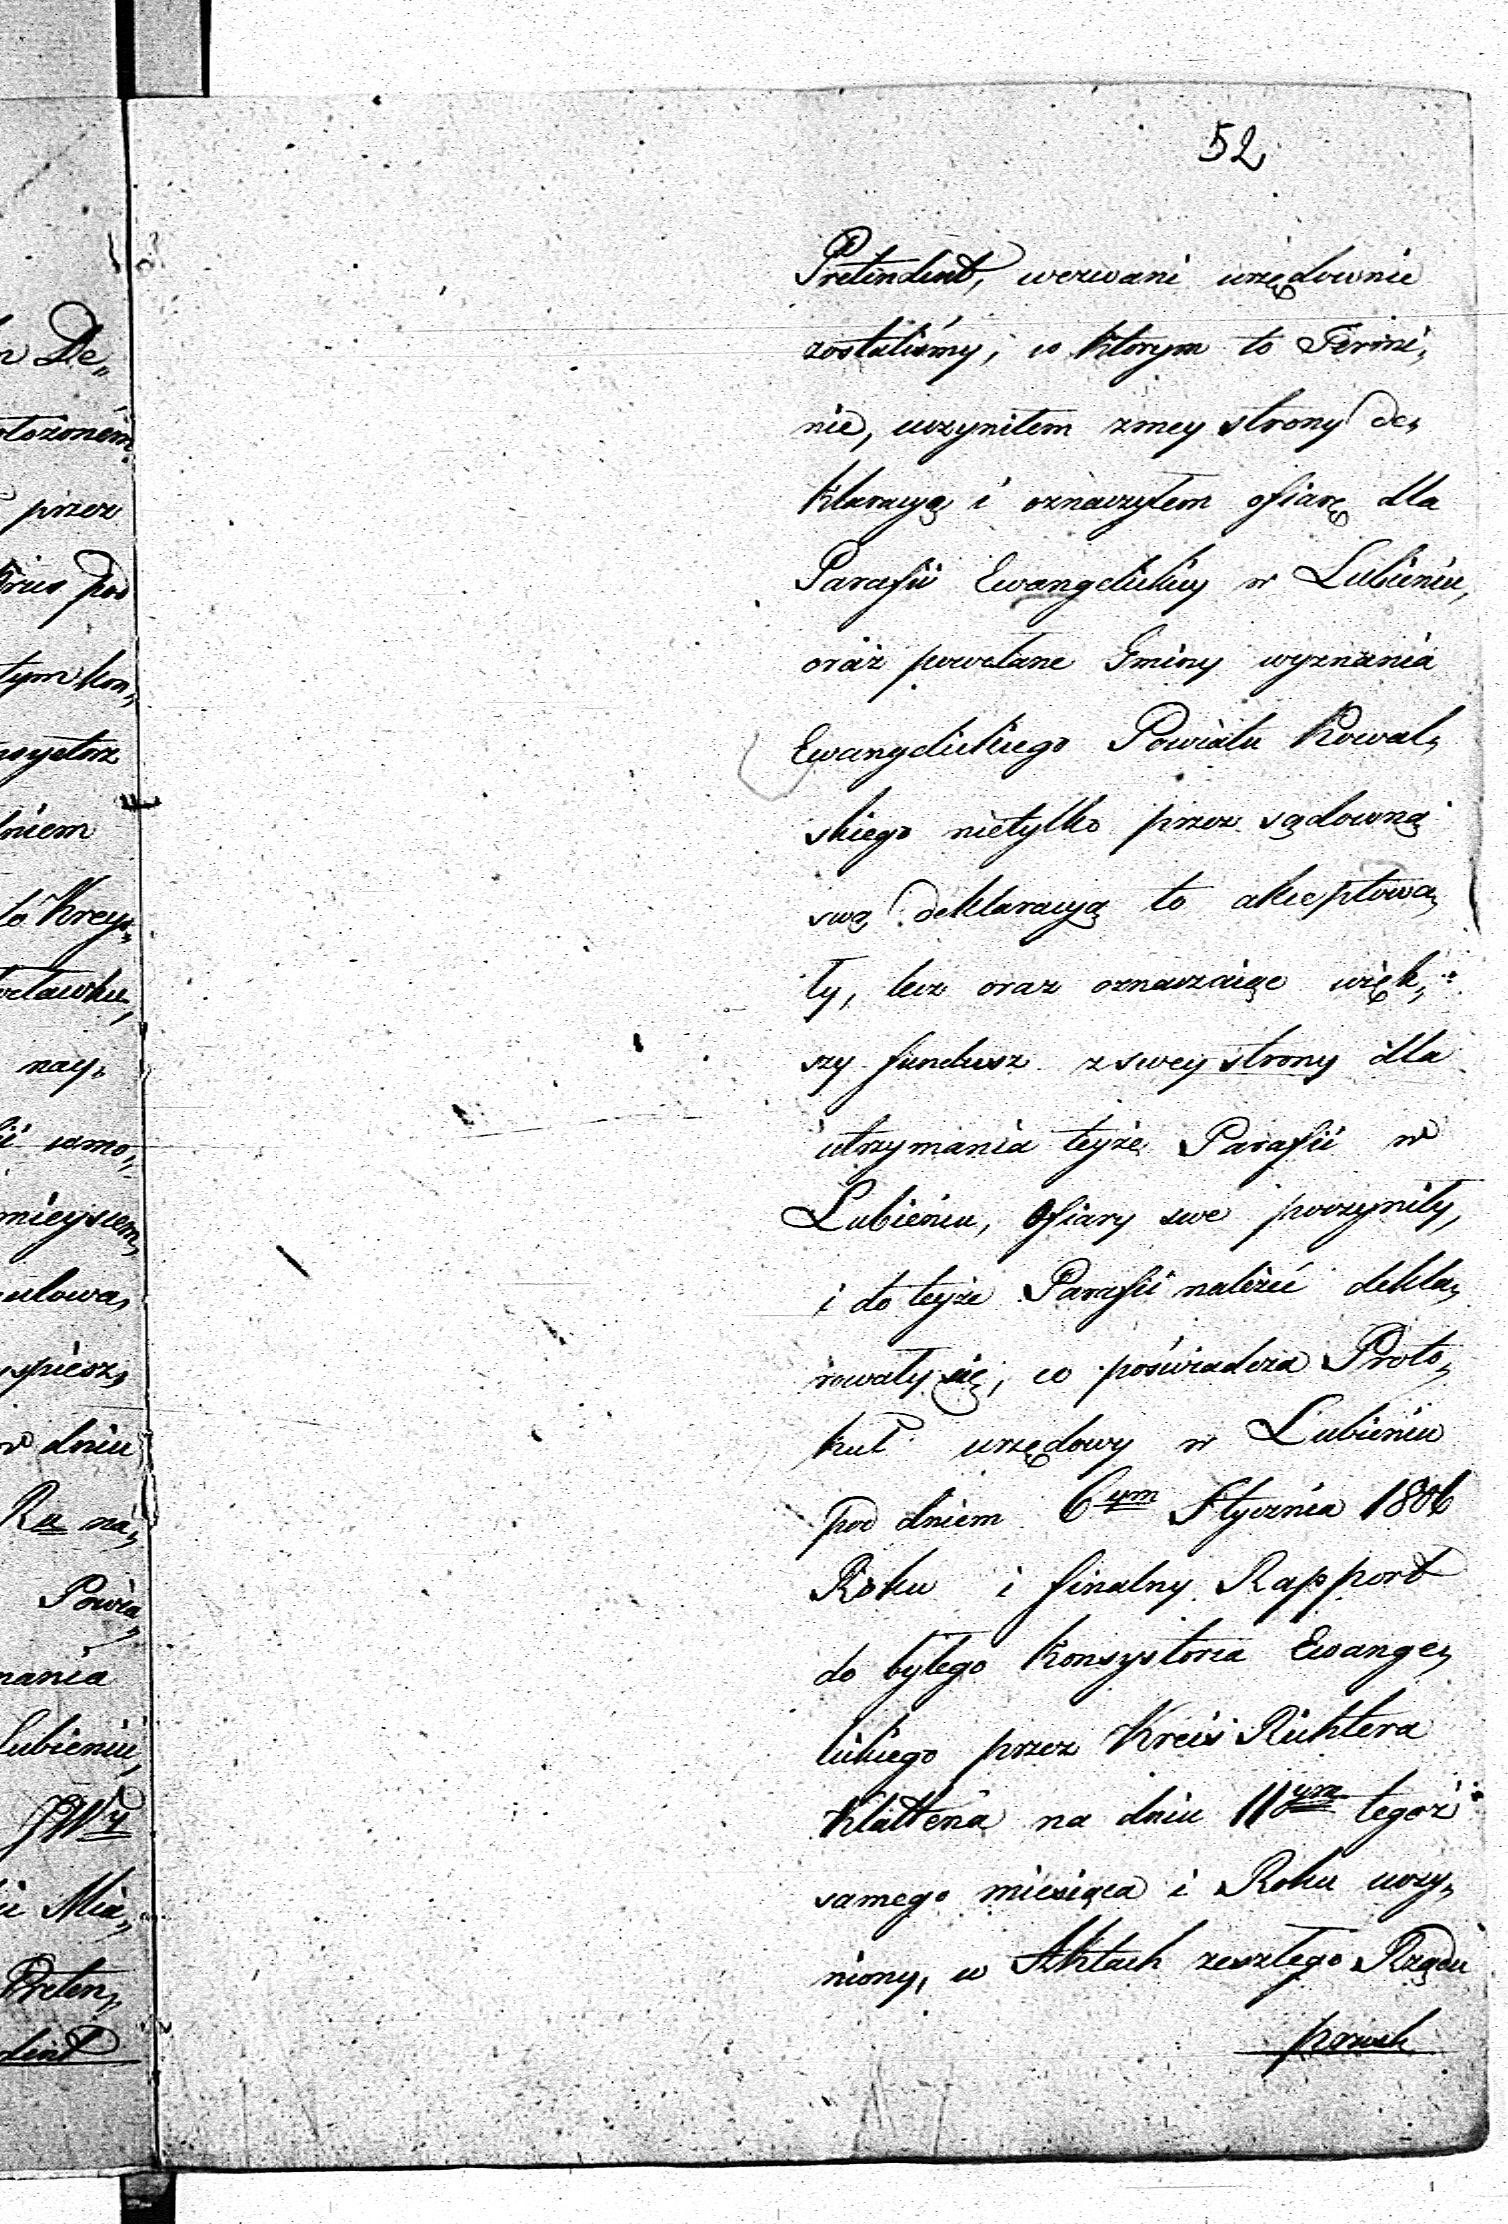 52
Pretendent, wezwani urzędownie
zostaliśmy; w ktorym to Termi„
nie, uczyniłem zmey strony de„
klaracyą i oznaczyłem ofiarę dla
Parafii Ewangelickiey w Lubieniu,
oráz powołane Gminy wyznania
Ewangelickiego Powiatu Kowal„
skiego nietylko przez sądowną
swą deklaracyą to akceptowa„
ły, lecz oraz oznaczaiąc więk„
szy fundusz z swey strony dla
utrzymania teyże Parafii w
Lubieniu, Ofiary swe poczyniły,
i do teyże Parafii należeć dekla„
rowały się, co poświadcza Proto„
kuł urzędowy w Lubieniu
pod dniem 6ym Stycznia 1806
Roku i finalny Rapport
do byłego Konsystorza Ewange„
lickiego przez Kreis Richtera
Klattena na dniu 11ym tegoż
samego miesiąca i Roku uczy„
niony, w Aktach zeszłego Rządu
prusk
De„
otożonem
przez
pod
tym kon„
nsystorz
dniem
to Kreys„
ocławku,
nay„
mieysiem,
ulowa„
spiesz„
w dniu
Ru na„
Powia„
nania
Lubieniu,
JWy
Mia„
Preten„
dent